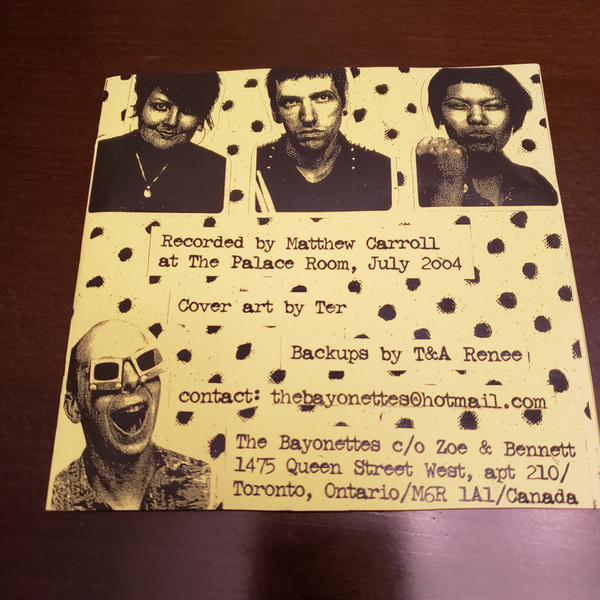 Recorded by Matthew Carroll
at The Palace Room, July 2004
Cover art by Ter
Backups by T&A Renee
contact: thebayonettes@hotmail.com
The Bayonettes c/o Zoe & Bennett
1475 Queen Street West, apt 210/
Toronto, Ontario/M6R 1A1/Canada